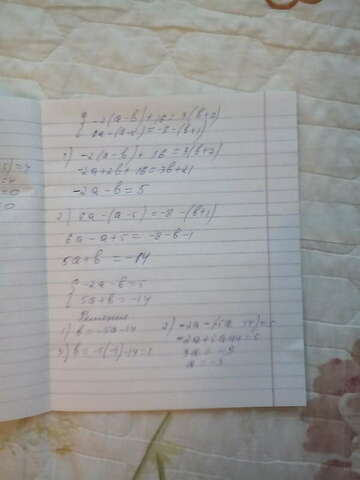 { -2(a-b)+16=3(b+7)
6a-(a-5)=-8-(b+1)
1) -2(a-b)+16=3(b+7)
-2a+2b+16=3b+21
-2a-b=5
2) 6a-(a-5)=-8-(b+1)
6a-a+5=-8-b-1
5a+b=-14
{ -2a-b=5
5a+b=-14
Решение
1) b=-5a-14
2) -2a-(-5a-14)=5
-2a+5a+14=5
3a=-9
a=-3
3) b=-5(-3)-14=1